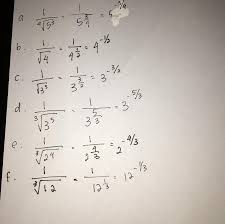 a. 1/∜5³ = 1/5^(3/4) = 5^(-3/4)
b. 1/√4 = 1/4^(1/2) = 4^(-1/2)
c. 1/√3³ = 1/3^(3/2) = 3^(-3/2)
d. 1/∛3⁵ = 1/3^(5/3) = 3^(-5/3)
e. 1/∛2⁴ = 1/2^(4/3) = 2^(-4/3)
f. 1/∛12 = 1/12^(1/3) = 12^(-1/3)